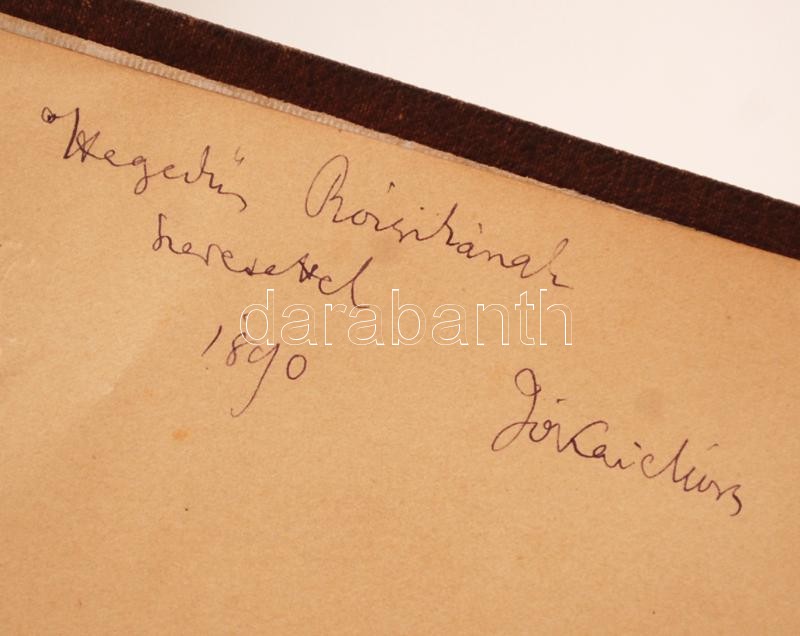 Hegedüs Rózsikának
szeretettel
1890
Jókai Mór
darabanth